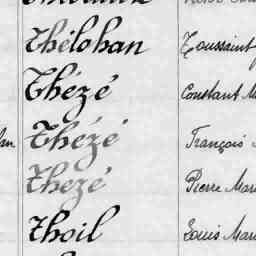 Thélohan Toussaint
Thézé Constant
Thézé François
Thezé Pierre Mar
Thoil Louis Mar